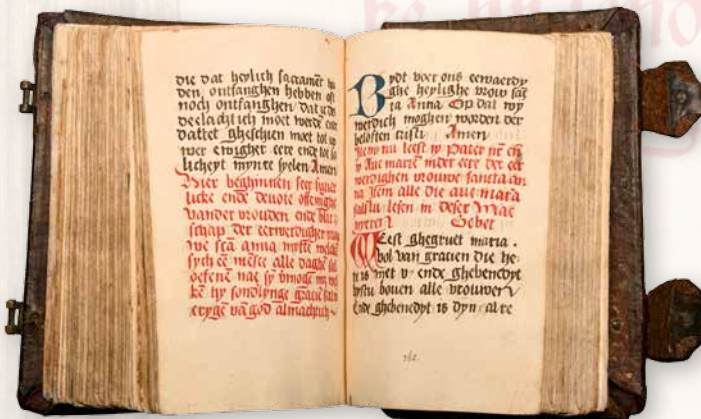 die dat heylich sacramēt
den, ontfanghen hebben oft
noch ontfanghen dat
deelachtich moet werdē ende
dattet gheschien moet tot
wer ewigher eere ende tot sa
licheyt mynre sielen Amen
Hier beghinnen seer
licke ende devote
vander vrouden ende blit
schap der eerwerdigher
we scā anna
sych ēē mēsce alle daghe sal
oefenē nae sȳ vmoge
kē hy sonderlynge gracie
vā god almachtich
Bydt voer ons eerwaerdy
ghe heylighe vrow sāc
ta Anna Op dat wy
werdich moghen worden der
beloften cristi Amen
nu leest ȳ Pater nr̄ eñ
ȳ Aue mariē inder eere der eer
werdighen vrouwe sancta an
na Item alle die aue maria
salstu lesen in deser Ma
nyeren Gebet
Weest ghegruet maria .
vol van gracien die he
re is met v ende ghebenedyt
bystu bouen alle vrouwen
Ende ghebenedyt is dyn